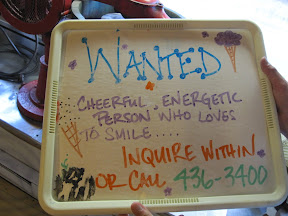 WANTED
CHEERFUL, ENERGETIC
PERSON WHO LOVES
TO SMILE....
INQUIRE WITHIN
OR CALL 436-3400